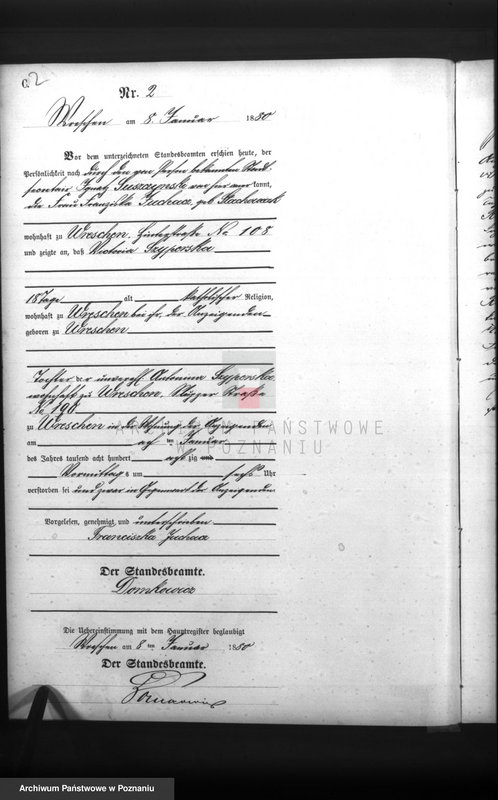 C. 2
Nr. 2
Wreschen am 8. Januar 1880
Vor dem unterzeichneten Standesbeamten erschien heute, der
Persönlichkeit nach durch den zur Person bekannten
Ignatz von hier aner kannt,
die Frau Franziska Juchacz geb.
wohnhaft zu Wreschen, Hinterstraße No 108
und zeigte an, daß Victoria Szyperska
18 Tage alt katholischer Religion,
wohnhaft zu Wreschen bei ihr, der Anzeigenden
geboren zu Wreschen
Tochter der unverehl. Antonina Szyperska
wohnhaft zu Wreschen, Straße
No 190
zu Wreschen in der Wohnung der Anzeigenden
am acht ten Januar
des Jahres tausend acht hundert acht zig und
Vormittags um sechs Uhr
verstorben sei und zwar in Gegenwart der Anzeigenden
Vorgelesen, genehmigt und unterschrieben
Franciszka Juchacz
Der Standesbeamte.
Domkowicz
Die Uebereinstimmung mit dem Hauptregister beglaubigt
Wreschen am 8 ten Januar 1880
Der Standesbeamte.
ARCHIWUM PAŃSTWOWE
W POZNANIU
Archiwum Państwowe w Poznaniu